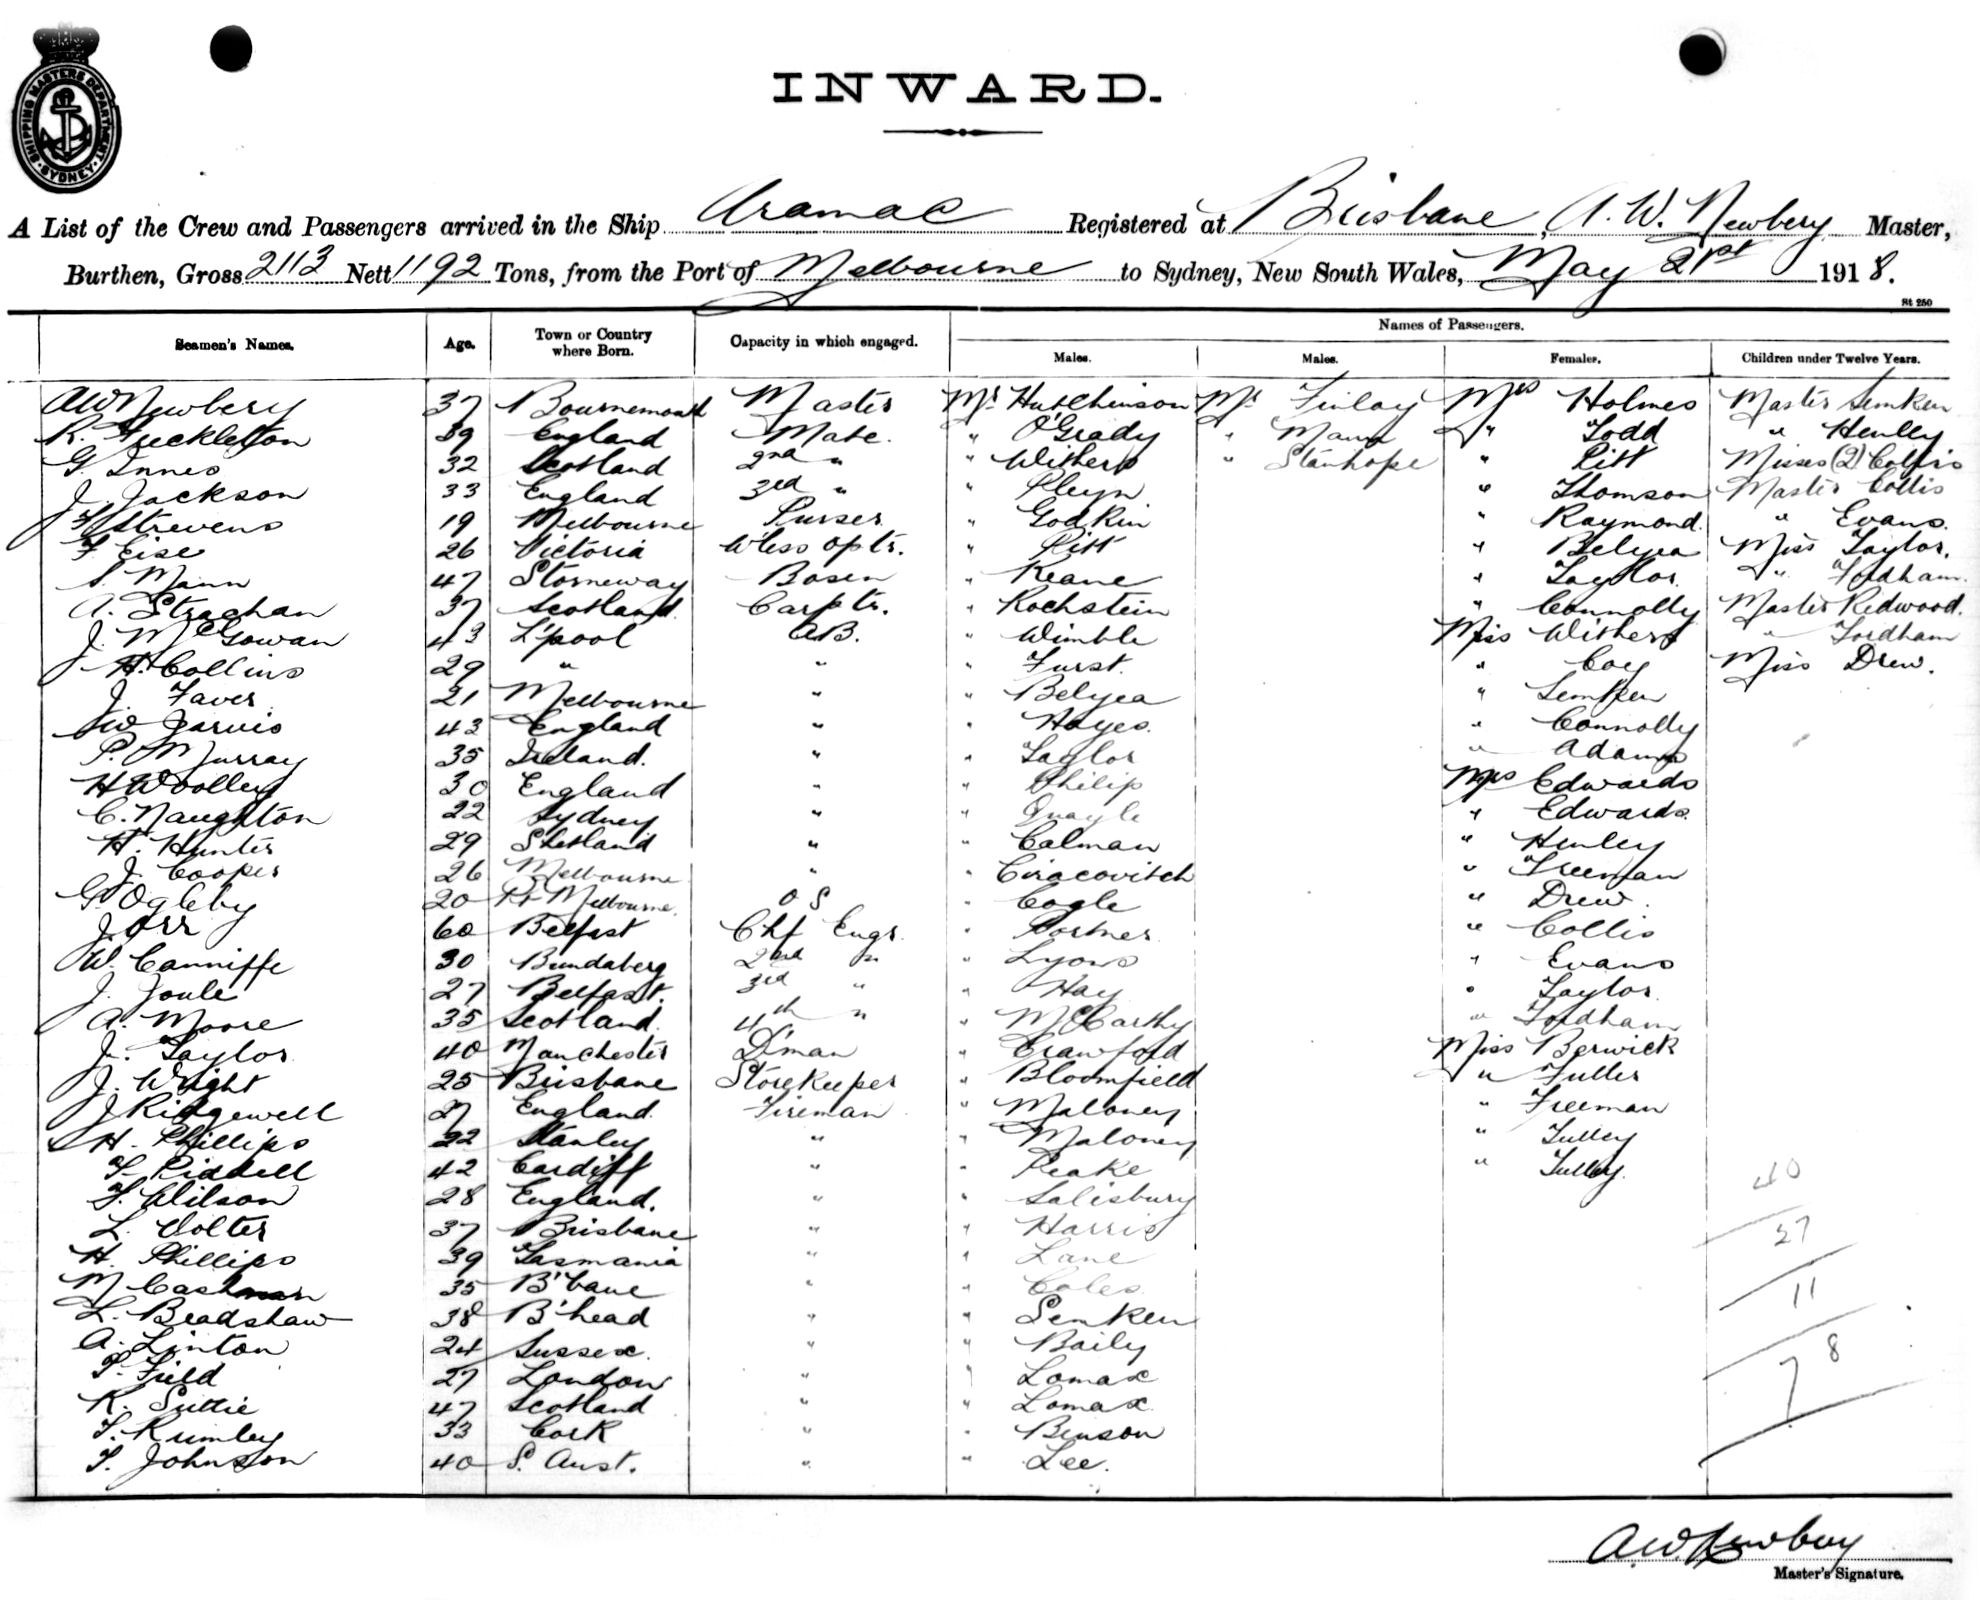 SHIPPING MASTERS DEPARTMENT
SYDNEY
INWARD.
A List of the Crew and Passengers arrived in the Ship Aramac Registered at Brisbane, A. W. Newbery Master,
Burthen, Gross 2113 Nett 1192 Tons, from the Port of Melbourne to Sydney, New South Wales, May 21st 1918.
St 250
Seamen's Names. Age. Town or Country where Born. Capacity in which engaged. Names of Passengers.
Males. Males. Females. Children under Twelve Years.
AW Newbery 37 Bournemouth Master Mr Hutchinson Mr Finlay Mrs Holmes Master Semken
R. Freckleton 39 England Mate. " O'Grady " Mann " Todd " Henley
G Innes 32 Scotland 2nd " " Withers " Stanhope " Pitt Misses (2) Collis
J. Jackson 33 England 3rd " " Pleyn " Thomson Master Collis
F Strevens 19 Melbourne Purser " Godkin " Raymond. " Evans.
F Eise 26 Victoria W'less optr. " Pitt " Belyea Miss Taylor.
Mann 47 Storneway Bosen " Keane " Taylor. " Fordham.
A. Strachan 37 Scotland. Carptr. " Rochstein " Connolly Master Redwood.
J. McGowan 43 L'pool AB. " Wimble Miss Withers " Fordham
H. Collins 29 " " " Furst. " Coy Miss Drew.
J. Faver 21 Melbourne " " Belyea " Semken
W Jarvis 43 England " " Hayes. " Connolly
P. Murray 35 Ireland. " " Taylor " Adams
H Woolley 30 England " " Philip Mrs Edwards
C. Naughton 22 Sydney " " Quayle " Edwards.
H. Hunter 29 Shetland " " Calman " Henley
J. Cooper 26 Melbourne " " Ciracovitch " Freeman
G. Ogleby 20 Pt Melbourne. OS " Cogle " Drew.
J Orr 60 Belfast Chf Engr. " Portner " Collis
W. Canniffe 30 Bundaberg 2nd " " Lyons " Evans
J. Joule 27 Belfast. 3rd " " Hay " Taylor
A. Moore 35 Scotland. 4th " " McCarthy " Fordham
J. Taylor 40 Manchester D'man " Crawford Miss Berwick
J. Wright 25 Brisbane Storekeeper " Bloomfield " Fuller
J Ridgewell 27 England. Fireman " Maloney " Freeman
H. Phillips 22 Stanley " " Maloney " Tulley
F. Riddell 42 Cardiff " " Peake " Tulley.
F. Wilson 28 England. " " Salisbury 40
L. Volter 37 Brisbane " " Harris 27
H. Phillips 39 Tasmania " " Lane
M Cashman 35 B'bane " " Coles 11
L. Bradshaw 38 B'head " " Semken
A. Linton 24 Sussex. " " Baily 8
T. Field 27 London " " Lomax 7
R. Suttie 47 Scotland " " Lomax.
T. Rumley 33 Cork " " Benson
T. Johnson 40 S. Aust. " " Lee.
A.W. Newbery
Master's Signature.